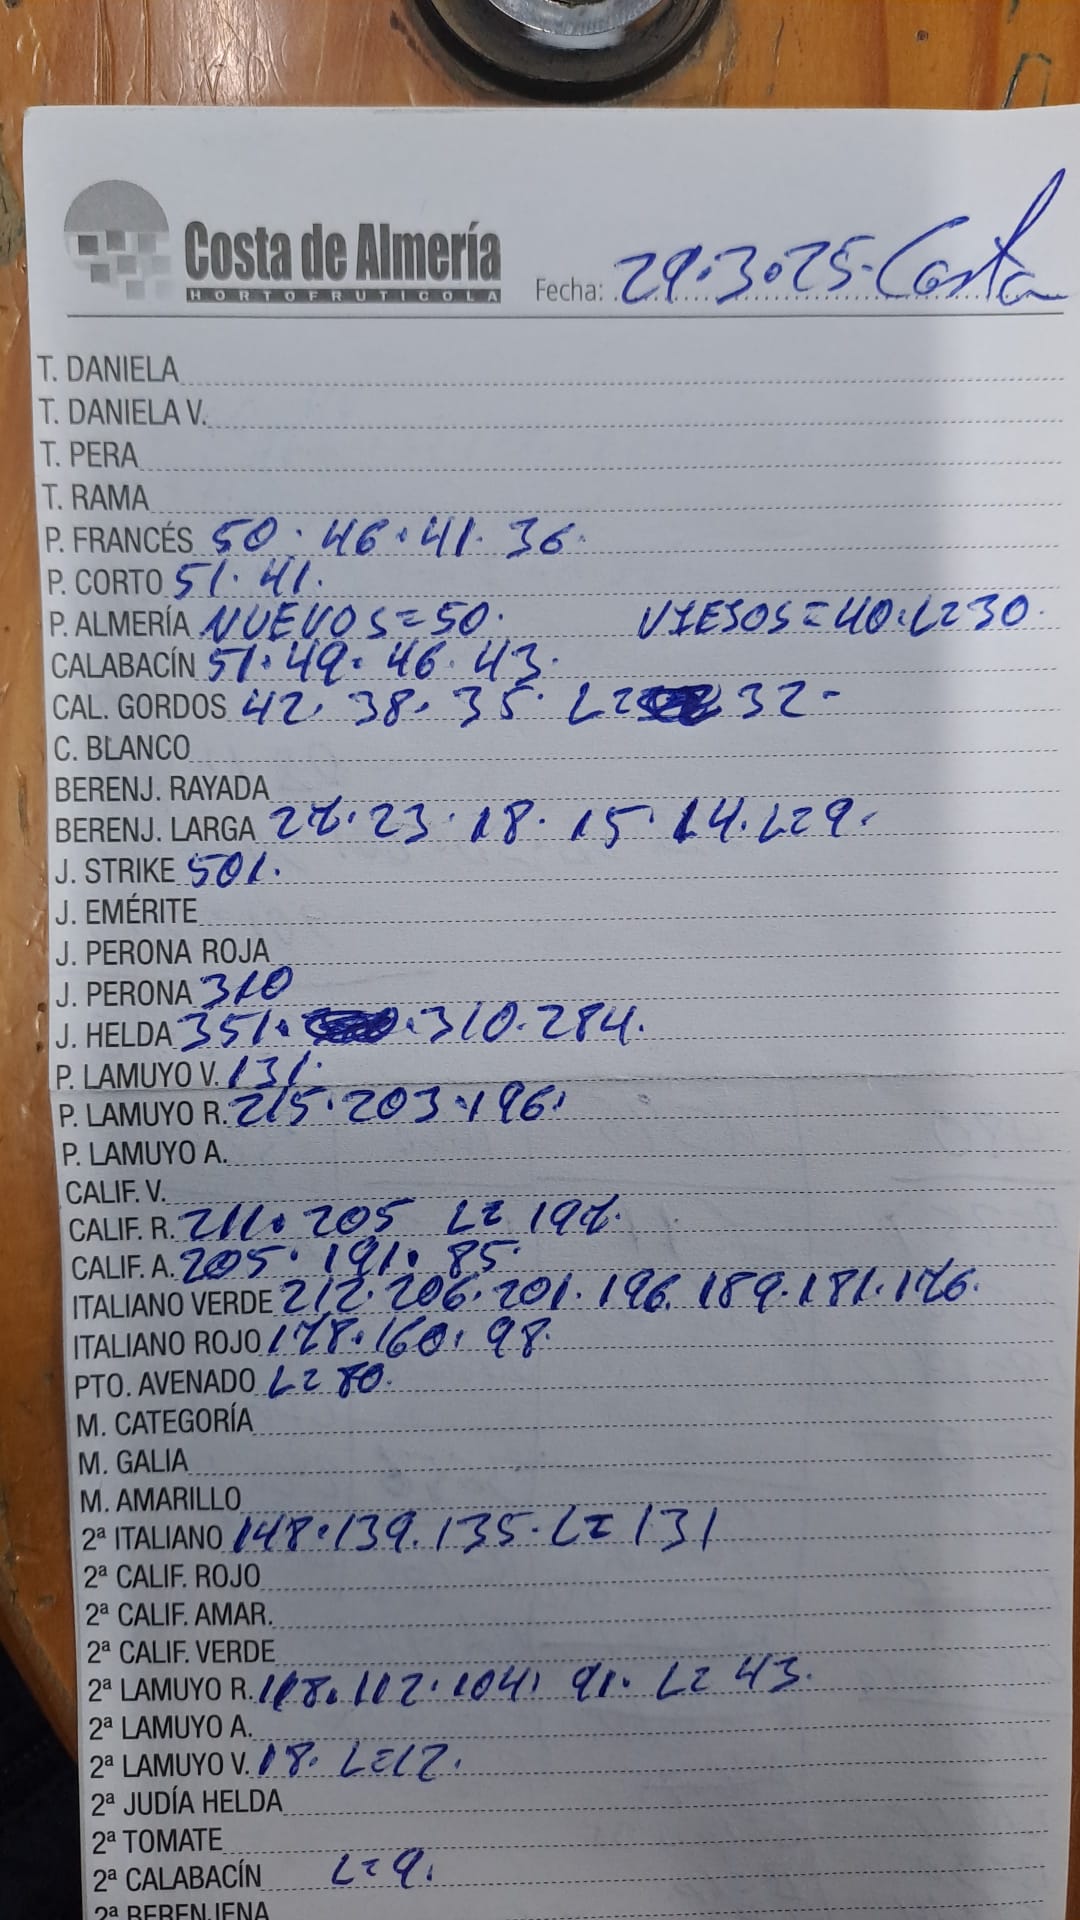 Costa de Almería
HORTOFRUTICOLA
Fecha: 29.3.25. Costa
T. DANIELA
T. DANIELA V.
T. PERA
T. RAMA
P. FRANCÉS 50. 46. 41. 36.
P. CORTO 51. 41.
P. ALMERÍA NUEVOS=50. VIESOS=40.L=30.
CALABACÍN 51. 49. 46. 43.
CAL. GORDOS 42. 38. 35. L= 32-
C. BLANCO
BERENJ. RAYADA
BERENJ. LARGA 27. 23. 18. 15. 14. L=9.
J. STRIKE 501.
J. EMÉRITE
J. PERONA ROJA
J. PERONA 310
J. HELDA 351. 310. 284.
P. LAMUYO V. 131.
P. LAMUYO R. 215. 203. 196.
P. LAMUYO A.
CALIF. V.
CALIF. R. 211. 205 L= 197.
CALIF. A. 205. 191. 85.
ITALIANO VERDE 212. 206. 201. 196. 189. 181. 176.
ITALIANO ROJO 178. 160. 98.
PTO. AVENADO L= 80.
M. CATEGORÍA
M. GALIA
M. AMARILLO
2ª ITALIANO 148. 139. 135. L= 131
2ª CALIF. ROJO
2ª CALIF. AMAR.
2ª CALIF. VERDE
2ª LAMUYO R. 118. 112. 104. 91. L= 43.
2ª LAMUYO A.
2ª LAMUYO V. 18. L=12.
2ª JUDÍA HELDA
2ª TOMATE
2ª CALABACÍN L=9.
2ª BERENJENA